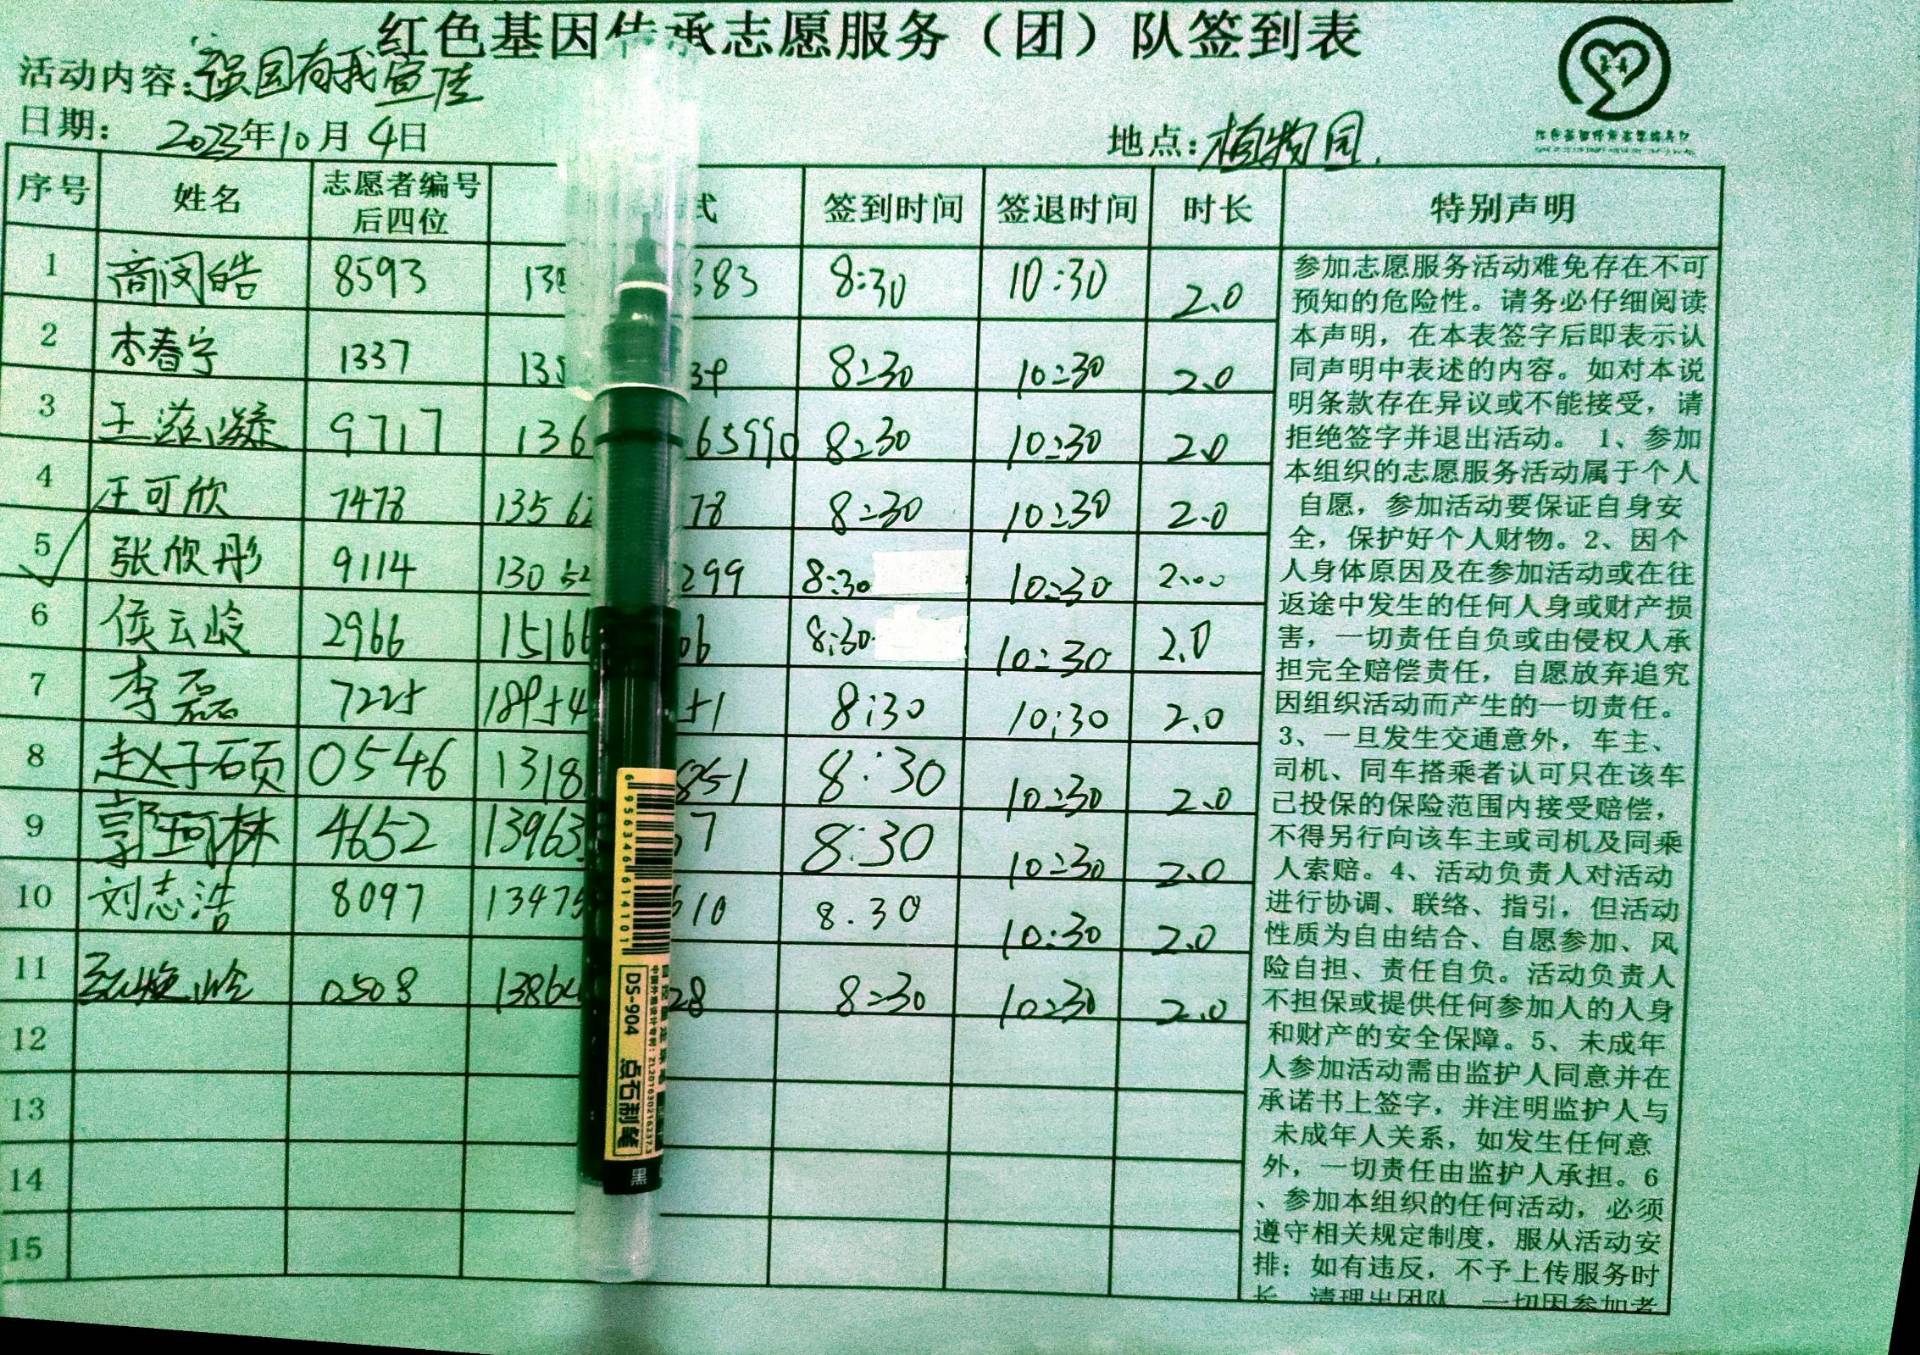 红色基因传承志愿服务（团）队签到表
活动内容：强国有我宣传
日期： 2023年10月4日 地点：植物园
序号 姓名 志愿者编号后四位 式 签到时间 签退时间 时长 特别声明
1 商闵皓 8593 138 383 8:30 10:30 2.0
2 李春宁 1337 135 39 8:30 10:30 2.0
3 王滋凝 9717 136 65990 8:30 10:30 2.0
4 王可欣 7478 13562 78 8:30 10:30 2.0
5 张欣彤 9114 13052 299 8:30 10:30 2.00
6 侯云岭 2966 15166 06 8:30 10:30 2.0
7 李磊 7225 18954 51 8:30 10:30 2.0
8 赵子硕 0546 1318 851 8:30 10:30 2.0
9 郭珂林 4652 13963 57 8:30 10:30 2.0
10 刘志浩 8097 13475 610 8.30 10:30 2.0
11 岭 0508 13864 28 8:30 10:30 2.0
12
13
14
15
参加志愿服务活动难免存在不可
预知的危险性。请务必仔细阅读
本声明，在本表签字后即表示认
同声明中表述的内容。如对本说
明条款存在异议或不能接受，请
拒绝签字并退出活动。 1、参加
本组织的志愿服务活动属于个人
自愿，参加活动要保证自身安
全，保护好个人财物。2、因个
人身体原因及在参加活动或在往
返途中发生的任何人身或财产损
害，一切责任自负或由侵权人承
担完全赔偿责任，自愿放弃追究
因组织活动而产生的一切责任。
3、一旦发生交通意外，车主、
司机、同车搭乘者认可只在该车
已投保的保险范围内接受赔偿，
不得另行向该车主或司机及同乘
人索赔。4、活动负责人对活动
进行协调、联络、指引，但活动
性质为自由结合、自愿参加、风
险自担、责任自负。活动负责人
不担保或提供任何参加人的人身
和财产的安全保障。5、未成年
人参加活动需由监护人同意并在
承诺书上签字，并注明监护人与
未成年人关系，如发生任何意
外，一切责任由监护人承担。6
、参加本组织的任何活动，必须
遵守相关规定制度，服从活动安
排；如有违反，不予上传服务时
长，清理出团队，一切因参加者
6 956346 614101
DS-904 点石制笔
黑